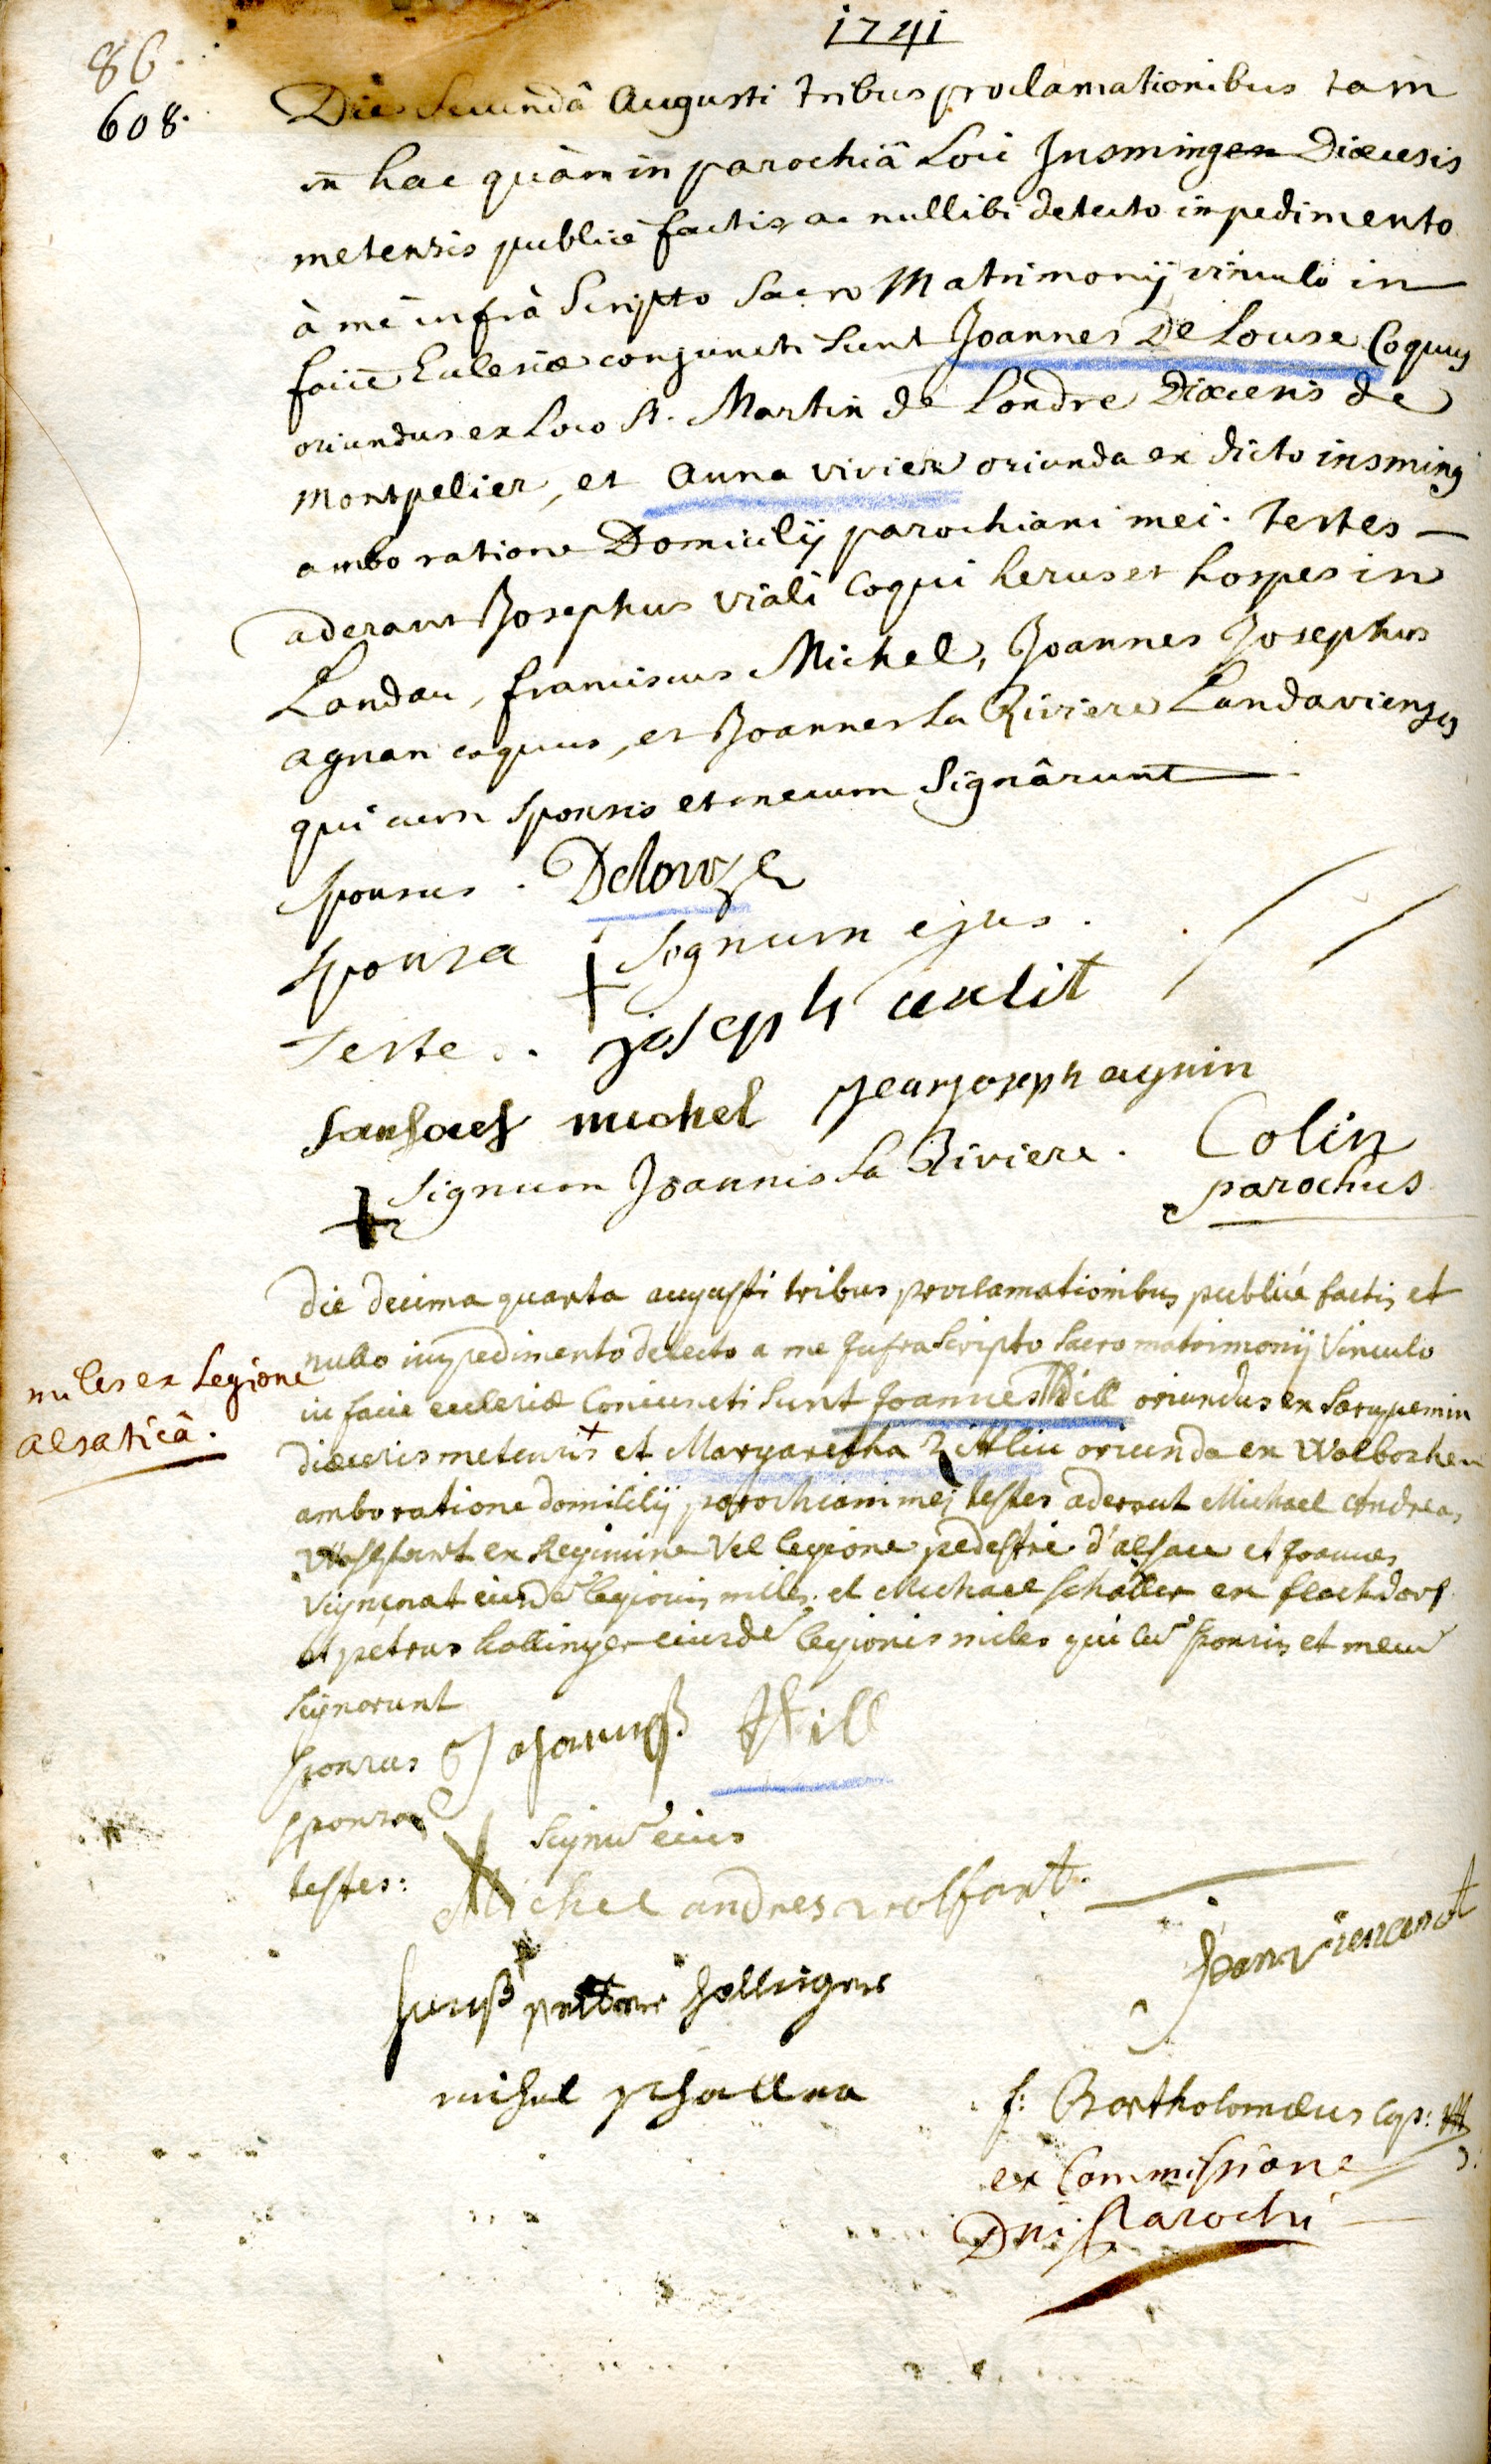 1741
86.
608.
Die Secundâ Augusti tribus proclamationibus tam
in hac quàm in parochiâ Loci Insmingen Diœcesis
metensis publicè factis ac nullibi detecto impedimento
à me infrà Scripto Sacro Matrimonij vinculo in
faciê Ecclesiæ conjuncti sunt Joannes De Louse Coquus
oriundus ex Loco St. Martin de Londre Diœcesis de
Montpelier, et Anna vivier oriunda ex dicto insming
ambo ratione Domicilij parochiani mei. Testes —
aderant Josephus viali Coqui herus et hospes in
Landau, franciscus Michel, Joannes Josephus
agnan coquus, et Joannes La Riviere Landaviensis
qui cum sponsis et mecum Signârunt
sponsus . Delouze
sponsa + signum ejus .
Teste . . joseph
michel jean joseph agnin
+ signum Joannis La Riviere .
Colin
parochus
die decima quarta augusti tribus proclamationibus publicé factis et
nullo impedimento detecto a me Infra Scripto Sacro matrimonij Vinculo
in facie ecclesiæ Coniuncti Sunt Joannes Will oriundus ex Sarupemin
diœcesis metensis + et Margaretha Zittlin oriunda ex Wolboshen
miles ex Legione
alsaticâ .
ambo ratione domicilij parochiani mei testes aderant Michael Andreas
Wolffart ex Regimine Vel legione pedestri d'alsace et Joannes
Vignenat eiusdē legionis miles. et Michael Schaller ex flechdorf
et petrus hollinger eiusdē legionis miles qui cū sponsis et mecū
signarunt
sponsus Will
sponsa signū eius
testes: Michel andres wolfart.
jean vienenat
petter hollinger
michel schaller
f: Bartholomæus Cap:
ex Commissione
Dni Parochi